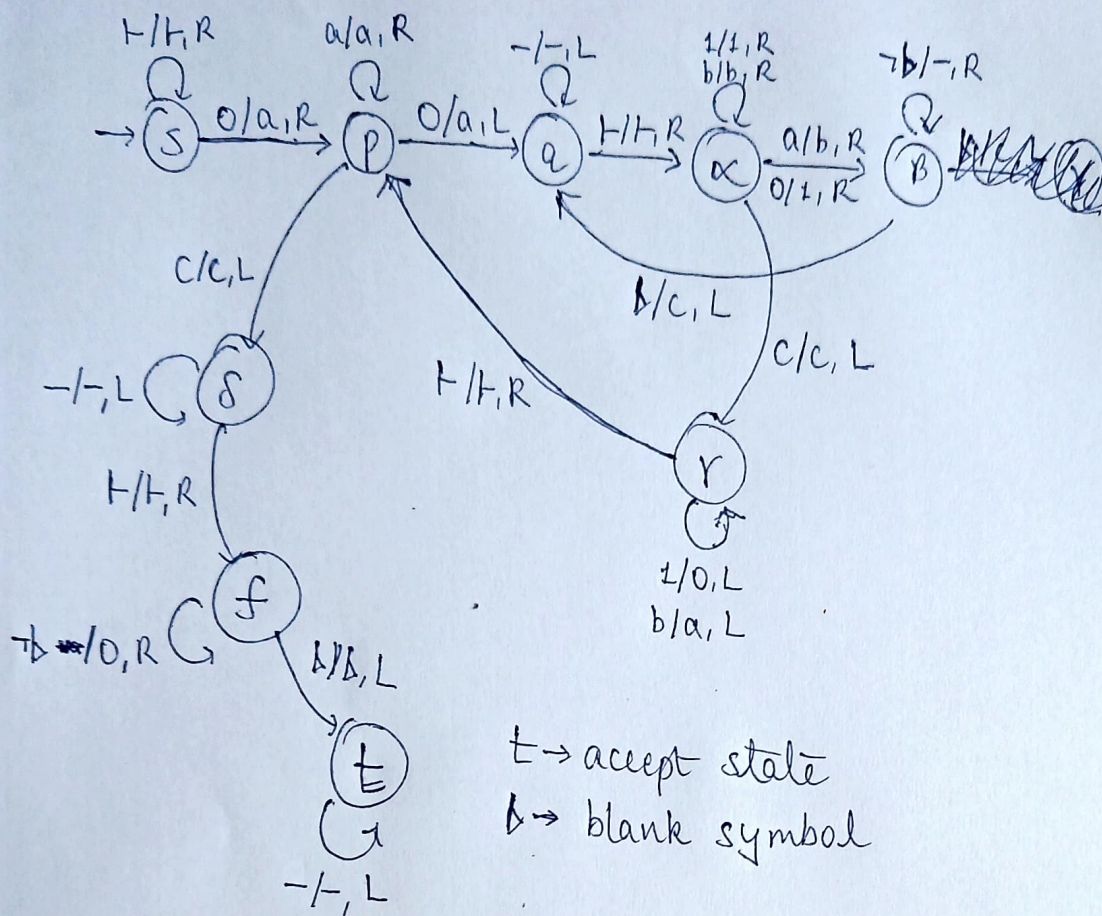 ⊢/⊢, R
a/a, R
-/-, L
1/1, R
b/b, R
¬ƀ/-, R
S
0/a, R
p
0/a, L
q
⊢/⊢, R
α
a/b, R
0/1, R
β
c/c, L
ƀ/c, L
c/c, L
-/-, L
δ
⊢/⊢, R
γ
⊢/⊢, R
1/0, L
b/a, L
f
¬ƀ /0, R
ƀ/ƀ, L
t
-/-, L
t → accept state
ƀ → blank symbol